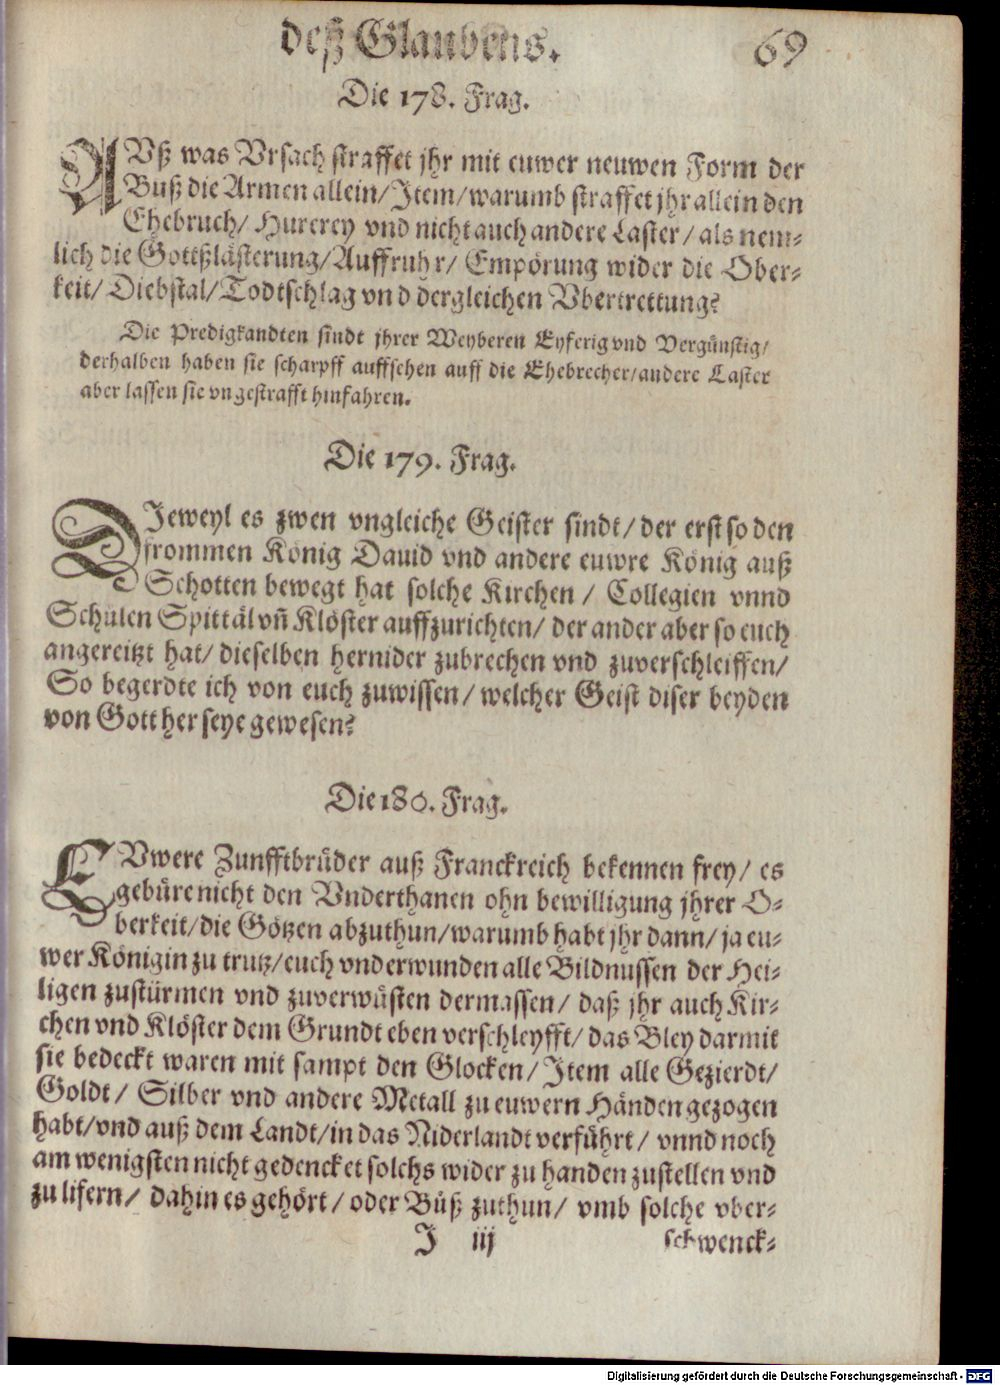 deß Glaubens. 69
Die 178. Frag.
AVß was Vrsach straffet jhr mit euwer neuwen Form der
Buß die Armen allein/ Item/ warumb straffet jhr allein den
Ehebruch/ Hurerey vnd nicht auch andere Laster/ als nem-
lich die Gottßlästerung/ Auffruhr/ Empörung wider die Ober-
keit/ Diebstal/ Todtschlag vnd dergleichen Vbertrettung?
Die Predigkandten sindt jhrer Weyberen Eyferig vnd Vergünstig/
derhalben haben sie scharpff auffsehen auff die Ehebrecher/ andere Laster
aber lassen sie vngestrafft hinfahren.
Die 179. Frag.
DIeweyl es zwen vngleiche Geister sindt/ der erst so den
frommen König Dauid vnd andere euwre König auß
Schotten bewegt hat solche Kirchen/ Collegien vnnd
Schulen Spittäl vñ Klöster auffzurichten/ der ander aber so euch
angereitzt hat/ dieselben hernider zubrechen vnd zuverschleiffen/
So begerdte ich von euch zuwissen/ welcher Geist diser beyden
von Gott her seye gewesen?
Die 180. Frag.
EVwere Zunfftbrüder auß Franckreich bekennen frey/ es
gebüre nicht den Vnderthanen ohn bewilligung jhrer O-
berkeit/ die Götzen abzuthun/ warumb habt jhr dann/ ja eu-
wer Königin zu trutz/ euch vnderwunden alle Bildnussen der Hei-
ligen zustürmen vnd zuverwüsten dermassen/ daß jhr auch Kir-
chen vnd Klöster dem Grundt eben verschleyfft/ das Bley darmit
sie bedeckt waren mit sampt den Glocken/ Item alle Gezierdt/
Goldt/ Silber vnd andere Metall zu euwern Händen gezogen
habt/ vnd auß dem Landt/ in das Niderlandt verführt/ vnnd noch
am wenigsten nicht gedencket solchs wider zu handen zustellen vnd
zu lifern/ dahin es gehört/ oder Büß zuthun/ vmb solche vber-
I iij schwenck-
Digitalisierung gefördert durch die Deutsche Forschungsgemeinschaft - DFG